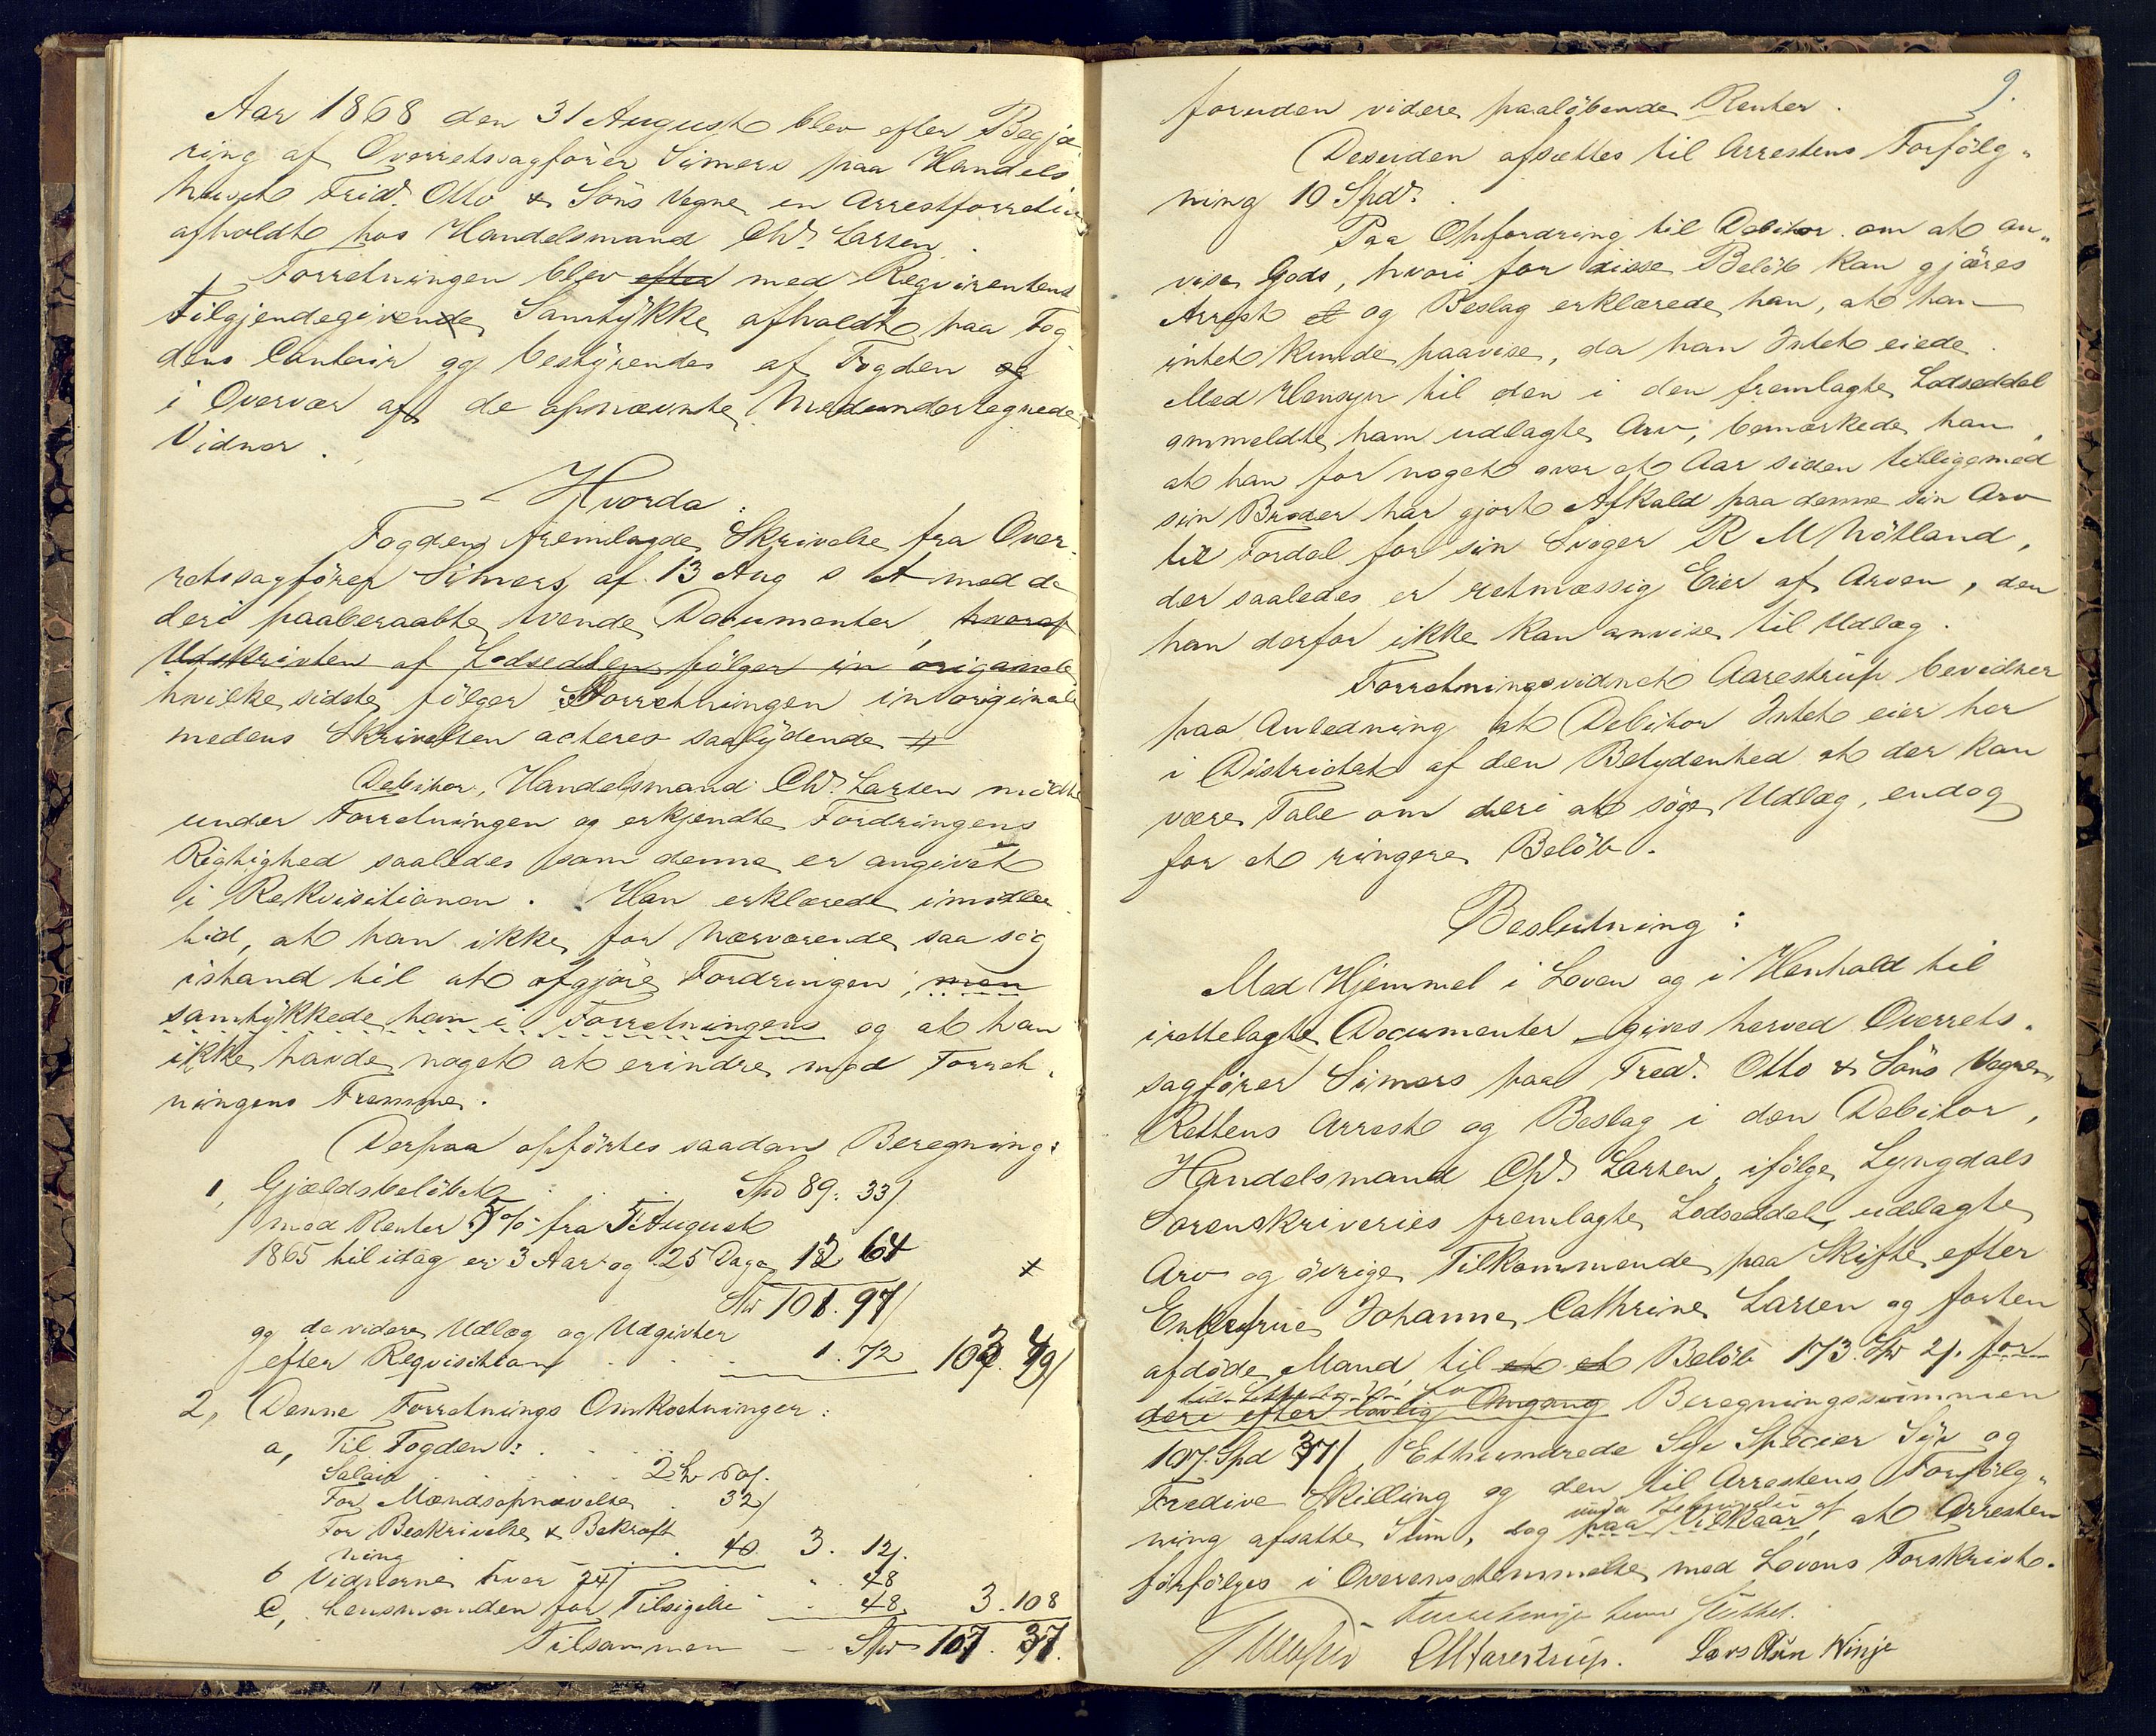 Aar 1868 den 31 August blev efter Begjæ
ring af Overretssagfører Simers paa Handels
huset Fridr. Otto & Søns Vegne en Arrestforretning
afholdt hos Handelsmand Chr. Larsen.
Forretningen blev efter med Reqvirentens
tilgjendegivende Samtykke afholdt paa Fog
dens Contoir og bestyrendes af Fogden og
i Overvær af de opnævnte Medundertegnede
Vidner.
Hvorda:
Fogden fremlagde Skrivelse fra Over
retssagfører Simers af 13 Aug s A med de
deri paaberaabte tvende Documenter, hvoraf
Udskriften af Lodsedlen følger in originale
hvilke sidste følger Forretningen in originale
medens Skrivelsen acteres saalydende #
Debitor, Handelsmand Chr. Larsen mødte
under Forretningen og erkjendte Fordringens
Rigtighed saaledes som denne er angivet
i Rekvisitionen. Han erklærede imidler
tid, at han ikke for nærværende saa sig
istand til at afgjøre Fordringen, men
samtykkede han i Forretningens og at han
ikke havde noget at erindre mod Forret
ningens Fremme.
Derpaa opførtes saadan Beregning:
1, Gjældsbeløbet . . . Spd 89. 33/
med Renter 5% fra 5 August
1865 til idag er 3 Aar og 25 Dage 12 64
Spd 101. 97/
og de videre Udlæg og Udgivter
efter Reqvisition . . . 1. 72 103. 49/
2, Denne Forretnings Omkostninger:
a, Til Fogden: . .
Salair . . . 2
For Mændsopnævelse . 32/
For Beskrivelse & Bekræft
ning . . . 40 3. 12/.
b Vidnerne hver 24/ . . . 48
c, Lensmanden for Tilsigelse . . 48 3. 108
Tilsammen — Spd 107. 37.
9.
foruden videre paaløbende Renter.
Desuden afsættes til Arrestens Forfølg„
ning 10 Spdr.
Paa Opfordring til Debitor om at an„
vise Gods, hvori for disse Beløb kan gjøres
Arrest et og Beslag erklærede han, at han
intet kunde paavise, da han Intet eiede.
Med Hensyn til den i den fremlagte Lodseddel
ommeldte ham udlagte Arv, bemærkede han,
at han for noget over et Aar siden tilligemed
sin Broder har gjort Afkald paa denne sin Arv
til Fordel for sin Svoger R M Nøtland,
der saaledes er retmæssig Eier af Arven, den
han derfor ikke kan anvise til Udlæg.
Forretningsvidnet Aarestrup bevidner
paa Anledning at Debitor Intet eier her
i Districtet af den Betydenhed at der kan
være Tale om deri at søge Udlæg, endog
for et ringere Beløb.
Beslutning:
Med Hjemmel i Loven og i Henhold til
irettelagte Documenter gives herved Overrets„
sagfører Simers paa Fredr. Otto & Søns Vegne,
Rettens Arrest og Beslag i den Debitor,
Handelsmand Chr. Larsen, ifølge Lyngdals
Sorenskriveries fremlagte Lodseddel, udlagte
Arv og øvrige Tilkommende paa Skifte efter
Enkefrue Johanne Cathrine Larsen og forhen
afdøde Mand til et et Beløb 173 Spd 2/. for
deri efter lovlig Omgang Beregningssummen
107. Spd 37/, Ethundrede Syv Specier Syv og
Tredive Skilling og den til Arrestens Forfølg„
ning afsatte Sum, dog paa Vilkaar, at Arresten
forfølges i Overensstemmelse med Lovens Forskrivt.
Forretningen hermed sluttet.
Aarestrup. Lars Olsen Ninje